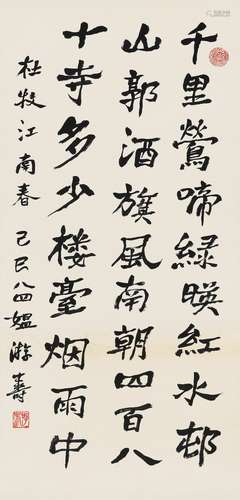 千里鶯啼緑暎紅水邨
山郭酒旗風南朝四百八
十寺多少楼臺烟雨中
杜牧江南春 己巳八四媪游壽